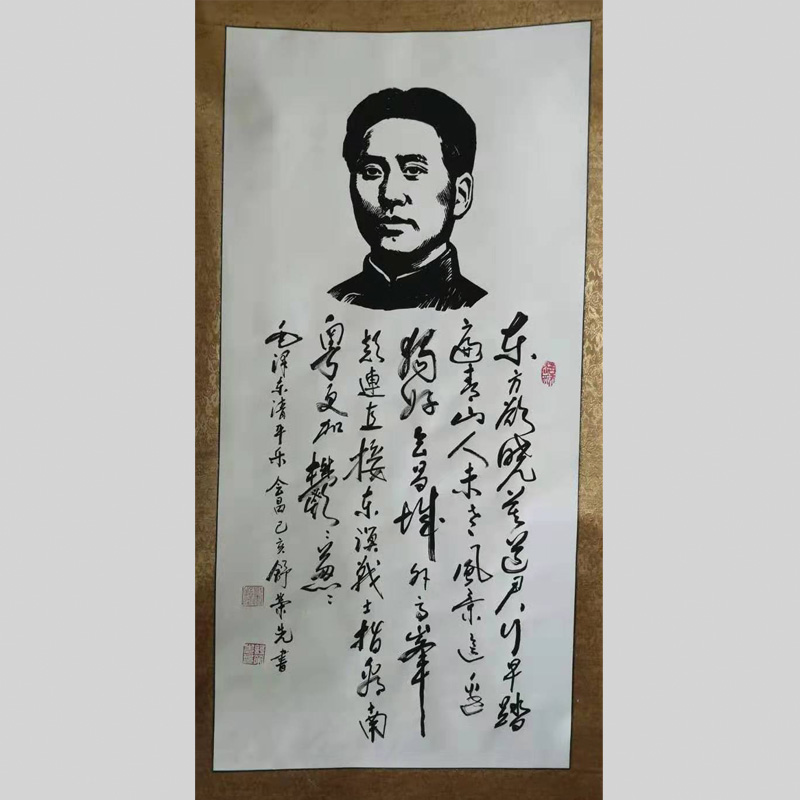 东方欲晓莫道君行早踏
遍青山人未老風景这边
独好会昌城外高峯
颠连直接东溟战士指看南
粤更加鬱々葱々
毛泽东清平乐会昌己亥舒荣先书